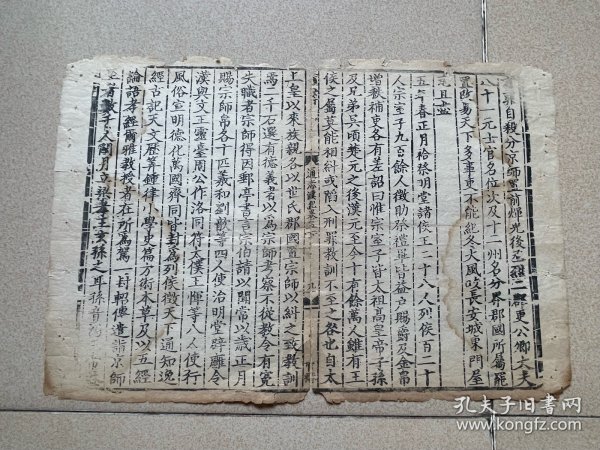 罪自殺分京師置前煇光後丞烈二郡更公卿大夫
八十一元士官名位次及十二州名分界郡國所屬罷
置改易天下多事吏不能紀冬大風吹長安城東門屋
瓦且盡
五年春正月祫祭明堂諸侯王二十八人列侯百二十
人宗室子九百餘人徵助祭禮畢皆益戶賜爵及金帛
增秩補吏各有差詔曰惟宗室子皆太祖高皇帝子孫
及兄弟吳頃楚元之後漢元至今十有餘萬人雖有王
侯之屬莫能相糾或陷入刑罪教訓不至之咎也自太
上皇以來族親各以世氏郡國置宗師以糾之致教訓
焉二千石選有德義者以爲宗師考察不從教令有冤
失職者宗師得因郵亭書言宗伯請以聞常以歲正月
賜宗師帛各十匹羲和劉歆等四人使治明堂辟雍令
漢與文王靈臺周公作洛同符太僕王惲等八人使行
風俗宣明德化萬國齊同皆封爲列侯徵天下通知逸
經古記天文歷算鍾律小學史篇方術本草及以五經
論語孝經爾雅教授者在所爲駕一封軺傳遣詣京師
至者數千人閏月立梁孝王玄孫之耳孫音爲
通志
孔夫子旧书网
www.kongfz.com